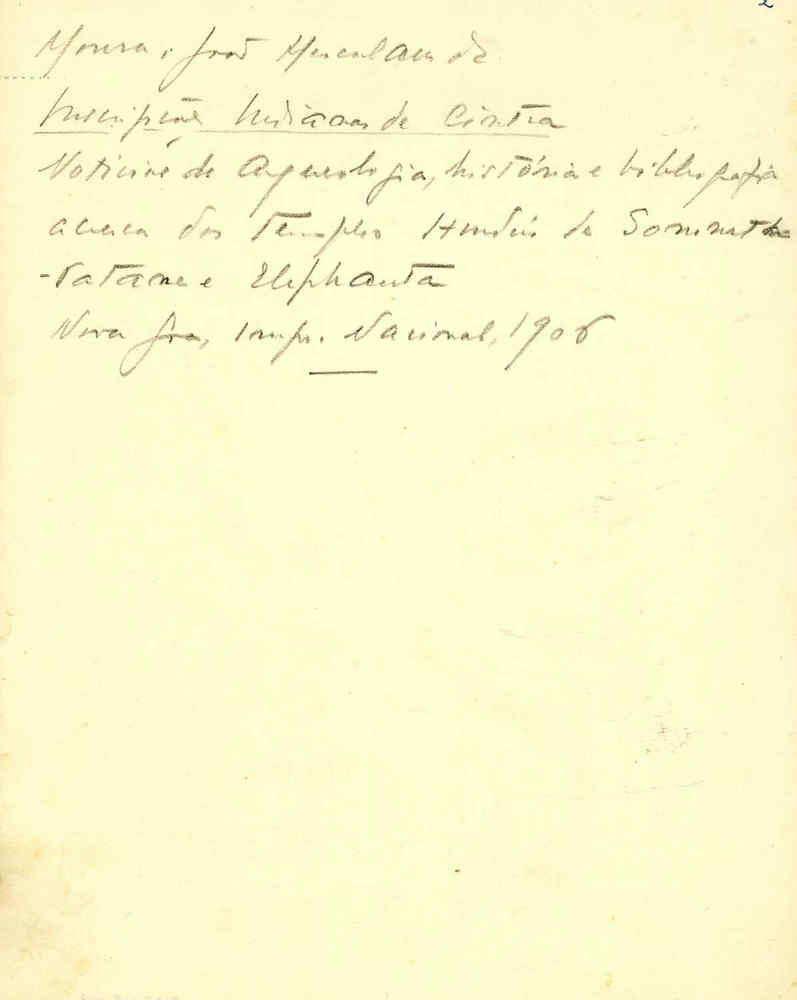 2
Moura, João Herculano de
Inscripções Indianas de Cintra
Noticias de Arqueologia, história e bibliografia
acerca dos Templos Hindús de Somnath-
-Patane e Elephanta
Nova Goa, Impr. Nacional, 1906